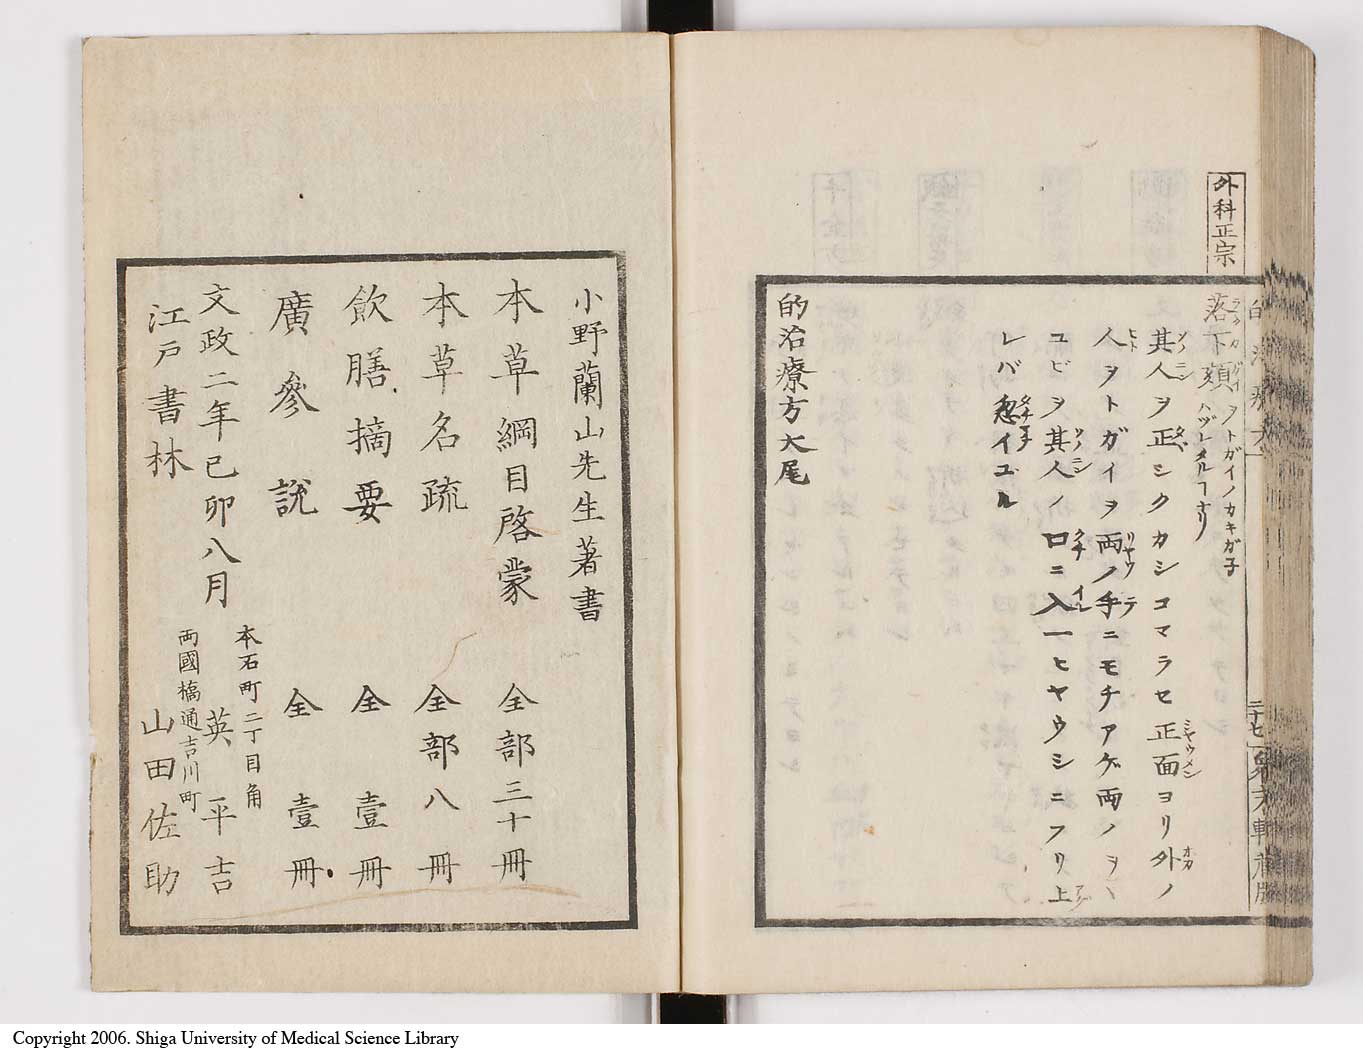 外科正宗
落下頦 ヲトガイノカキガ子
ハヅレタルナリ
其人ヲ正シクカシコマラセ正面ヨリ外ノ
人ヲトガイヲ両ノ手ニモチアゲ両ノヲヽ
ユビヲ其人ノ口ニ入一ヒヤウシニフリ上
レバ忽イユル
的治療方大尾
小野蘭山先生著書
本草綱目啓蒙 全部三十冊
本草名疏 全部八冊
飲膳摘要 全壹冊
廣參説 全壹冊
文政二年己卯八月
本石町二丁目角
英平吉
江戸書林
両國橋通吉川町
山田佐助
Copyright 2006. Shiga University of Medical Science Library